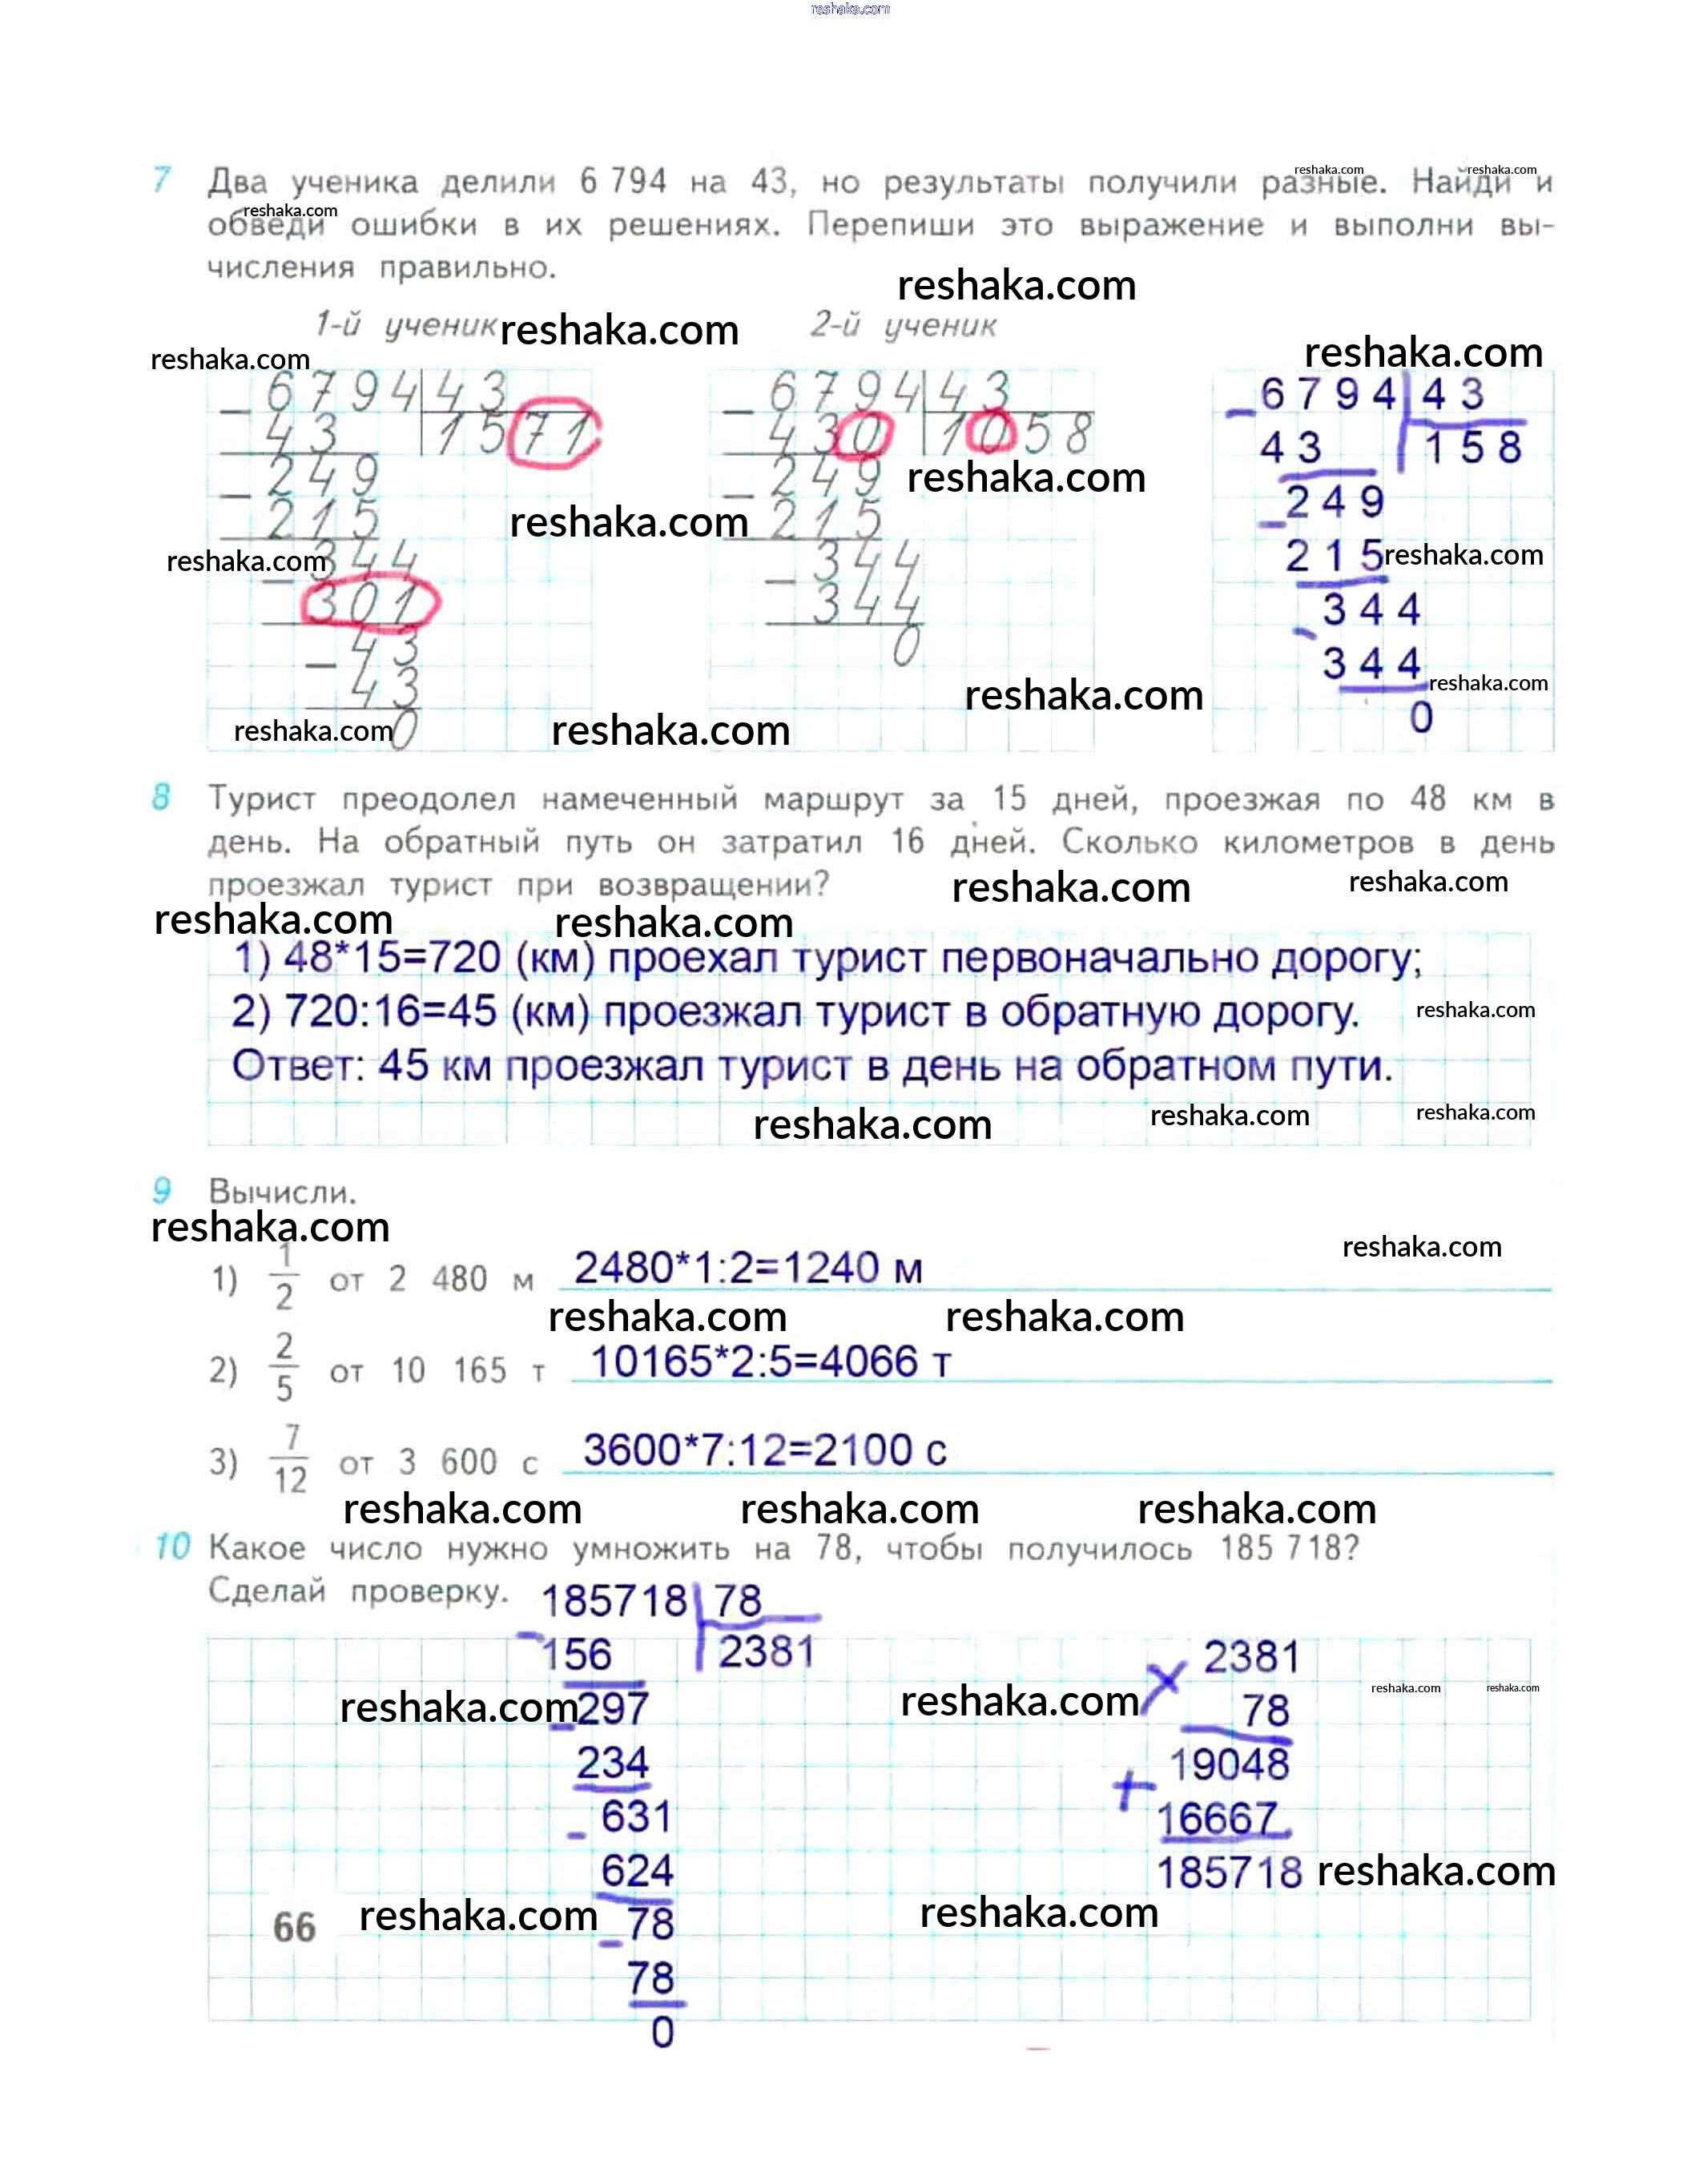 reshaka.com
7 Два ученика делили 6 794 на 43, но результаты получили разные. Найди и
reshaka.com reshaka.com
обведи ошибки в их решениях. Перепиши это выражение и выполни вы-
reshaka.com
числения правильно.
reshaka.com
1-й ученик reshaka.com 2-й ученик
reshaka.com reshaka.com
6794 43 6794 43 6794 43
43 1571 430 1058 43 158
249 249 reshaka.com 249
215 reshaka.com 215 215 reshaka.com
reshaka.com 344 344 344
301 344 344
43 0 reshaka.com
43 reshaka.com 0
reshaka.com 0 reshaka.com
8 Турист преодолел намеченный маршрут за 15 дней, проезжая по 48 км в
день. На обратный путь он затратил 16 дней. Сколько километров в день
проезжал турист при возвращении? reshaka.com reshaka.com
reshaka.com reshaka.com
1) 48*15=720 (км) проехал турист первоначально дорогу;
2) 720:16=45 (км) проезжал турист в обратную дорогу. reshaka.com
Ответ: 45 км проезжал турист в день на обратном пути.
reshaka.com reshaka.com reshaka.com
9 Вычисли.
reshaka.com reshaka.com
1) 1/2 от 2 480 м 2480*1:2=1240 м
reshaka.com reshaka.com
2) 2/5 от 10 165 т 10165*2:5=4066 т
3) 7/12 от 3 600 с 3600*7:12=2100 с
reshaka.com reshaka.com reshaka.com
10 Какое число нужно умножить на 78, чтобы получилось 185 718?
Сделай проверку. 185718 78
156 2381 2381
reshaka.com 297 reshaka.com × 78 reshaka.com reshaka.com
234 19048
631 + 16667
624 185718 reshaka.com
66 reshaka.com 78 reshaka.com
78
0